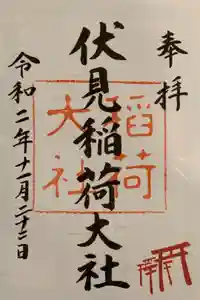 奉拝
伏見稲荷大社
稲荷
大社
令和二年十一月二十二日